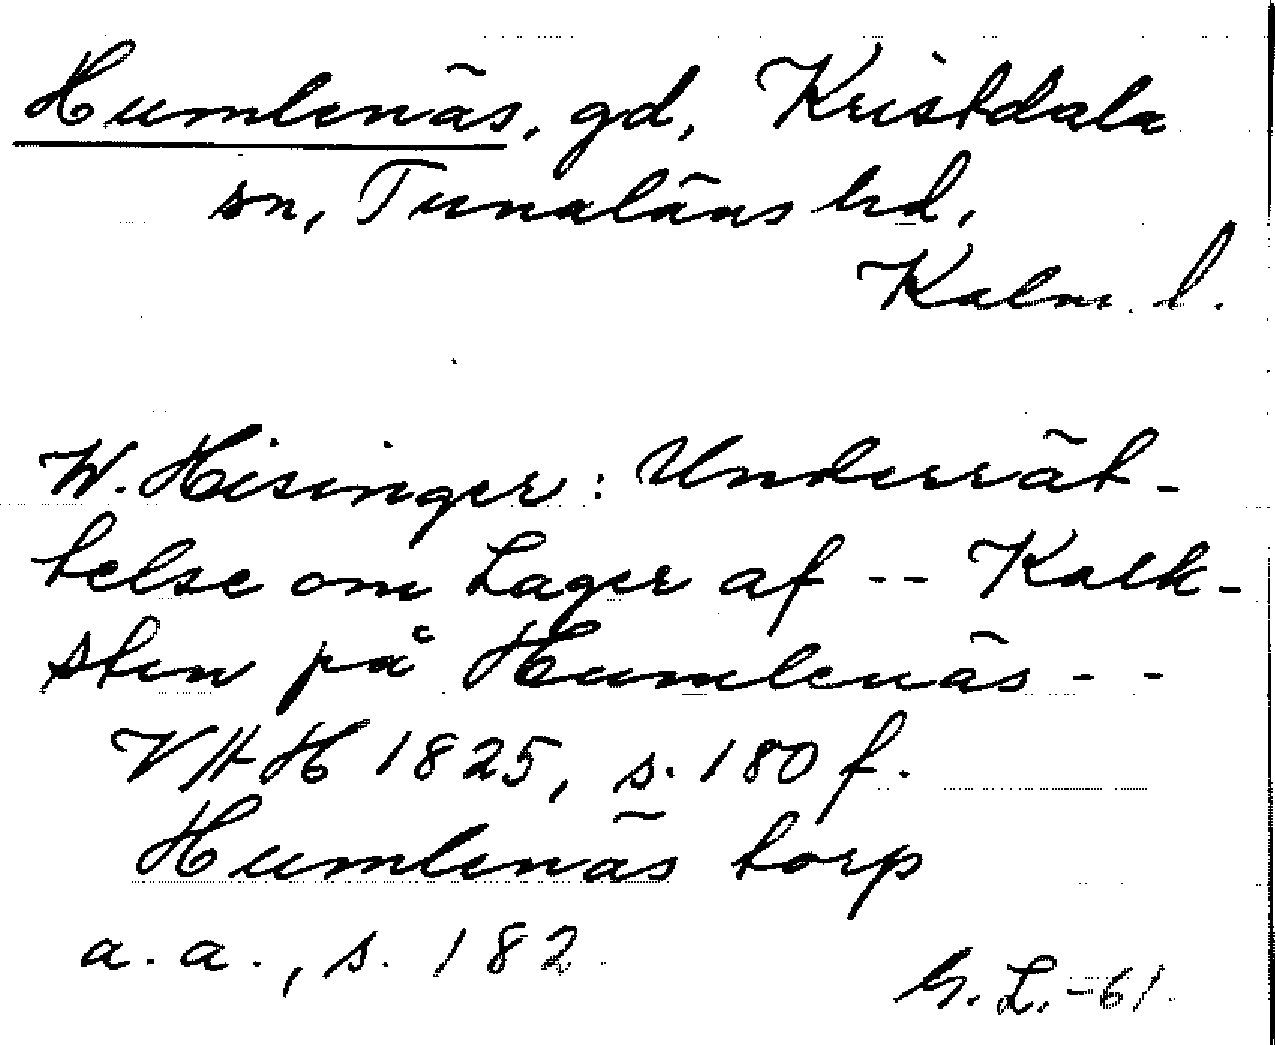 Humlenäs, gd, Kristdala
sn, Tunaläns hd,
Kalm. l.
W. Hisinger: Underrät-
telse om Lager af -- Kalk-
sten på Humlenäs --
VAH 1825, s. 180 f.
Humlenäs torp
a. a., s. 182
G. L. -61